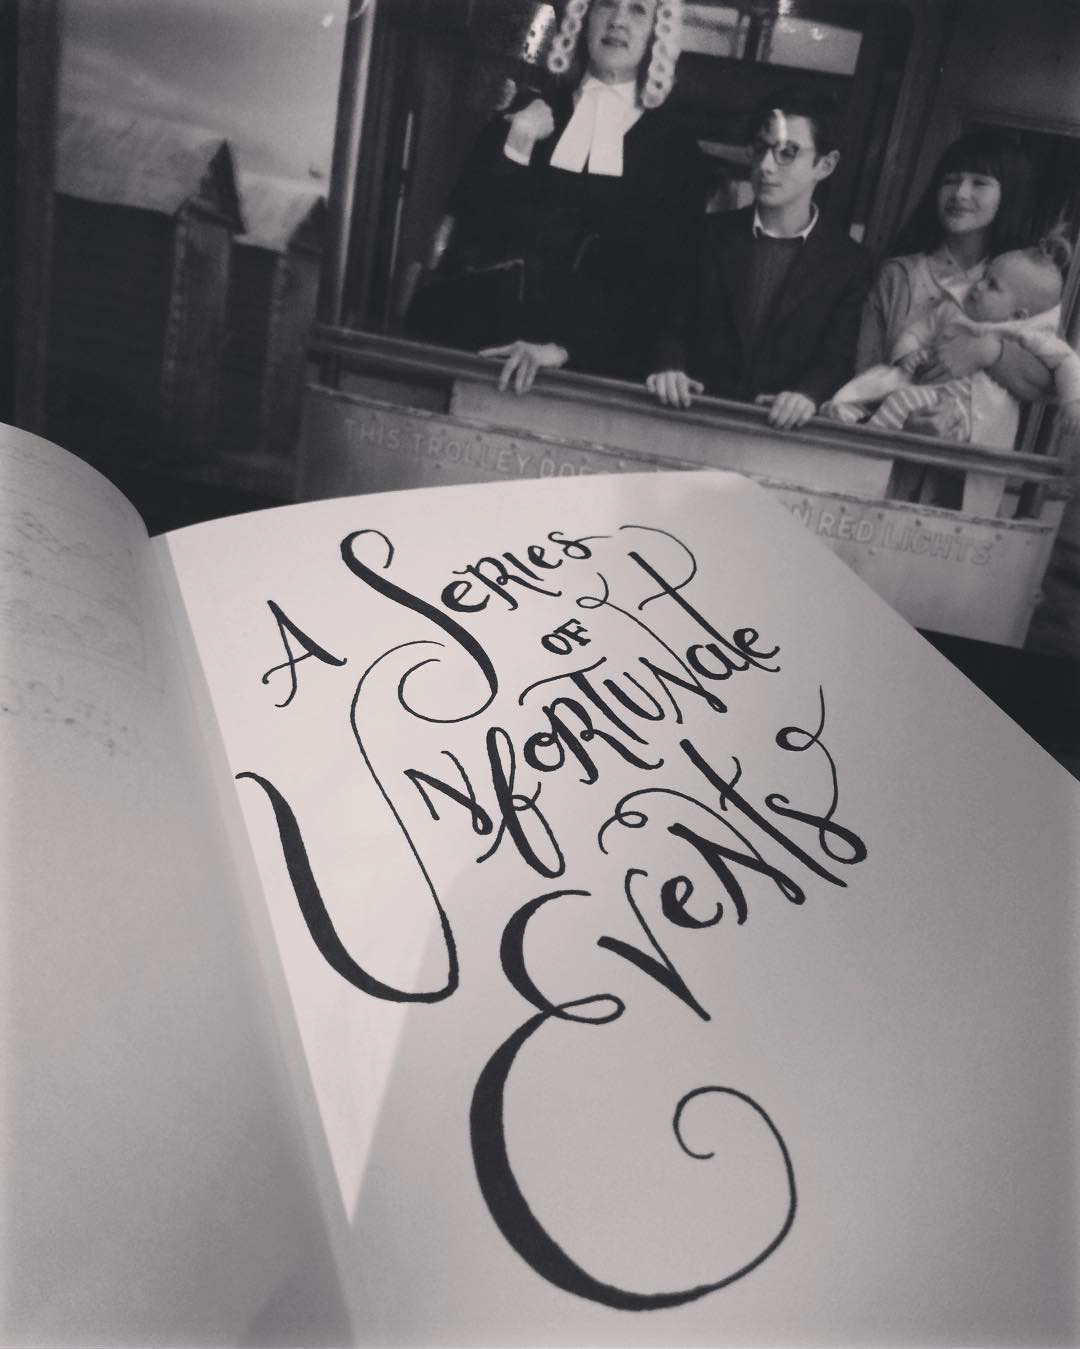 THIS TROLLEY DOES
N RED LIGHTS
A Series
of
Unfortunate
Events